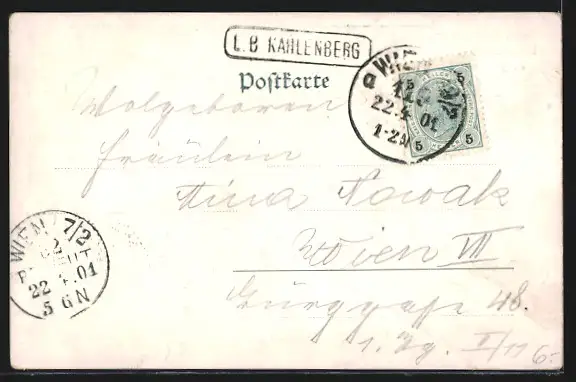 L.B KAHLENBERG
Postkarte
WIEN
22. 01
1-2N
5
5 5
Wolgeboren
Fräulein
Nina Nowak
Wien VII
Burggasse 48.
WIEN 7/2
BESTELLT
22 . 01
5 6 N